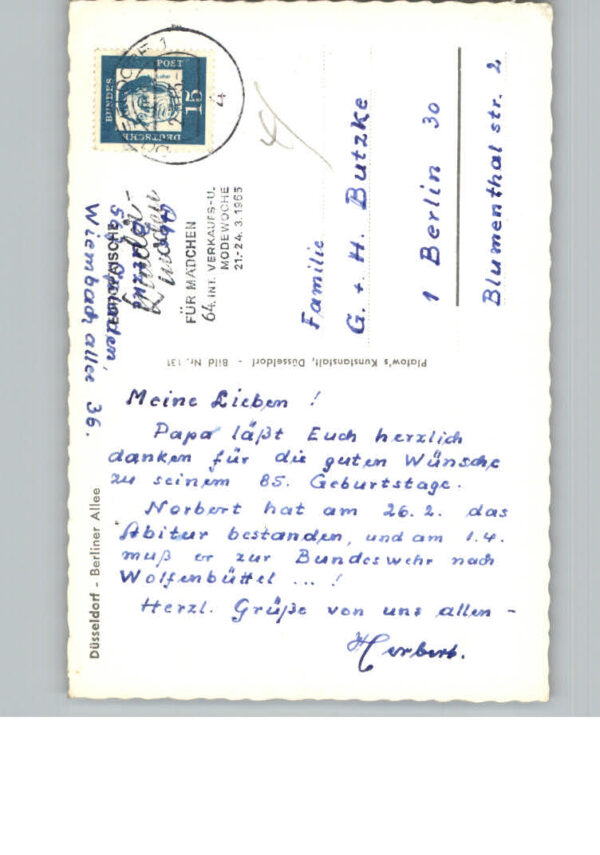 DEUTSCHE
BUNDES
POST
15
4
FÜR MÄDCHEN
64. INT. VERKAUFS-U.
MODEWOCHE
21.-24. 3. 1965
Wiembachallee 36.
Familie
G. + H. Butzke
1 Berlin 30
Blumenthalstr. 2
Platow's Kunstanstalt, Düsseldorf - Bild Nr. 131
Düsseldorf - Berliner Allee
Meine Lieben !
Papa läßt Euch herzlich
danken für die guten Wünsche
zu seinem 85. Geburtstage.
Norbert hat am 26.2. das
Abitur bestanden, und am 1.4.
muß er zur Bundeswehr nach
Wolfenbüttel ... !
Herzl. Grüße von uns allen -
Herbert.